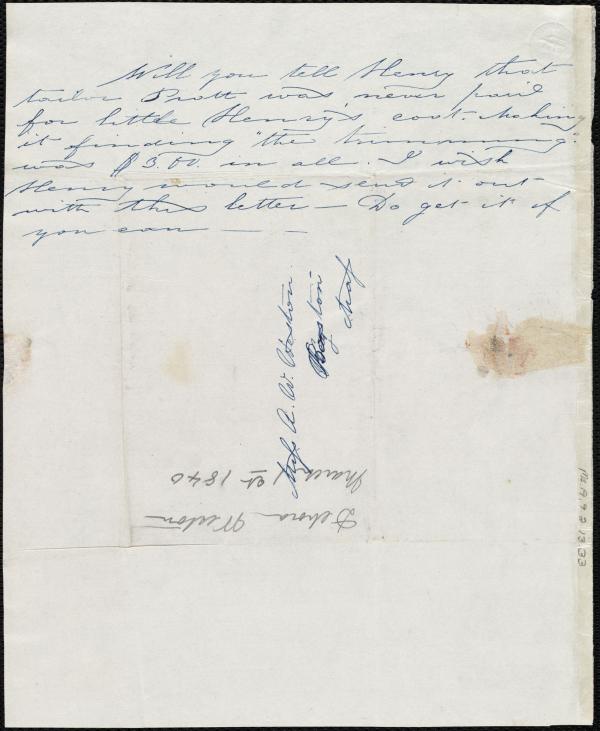 Will you tell Henry that
tailor Pratt was never paid
for little Henry's coat - Making
it & finding "the trimming"
was $3.00. in all. I wish
Henry would send it out
with this letter — Do get it if
you can — — —
Miss A. W. Weston.
Boston
Mass
Debora Weston
March 1st 1840
Ms.A.9.2.13.33